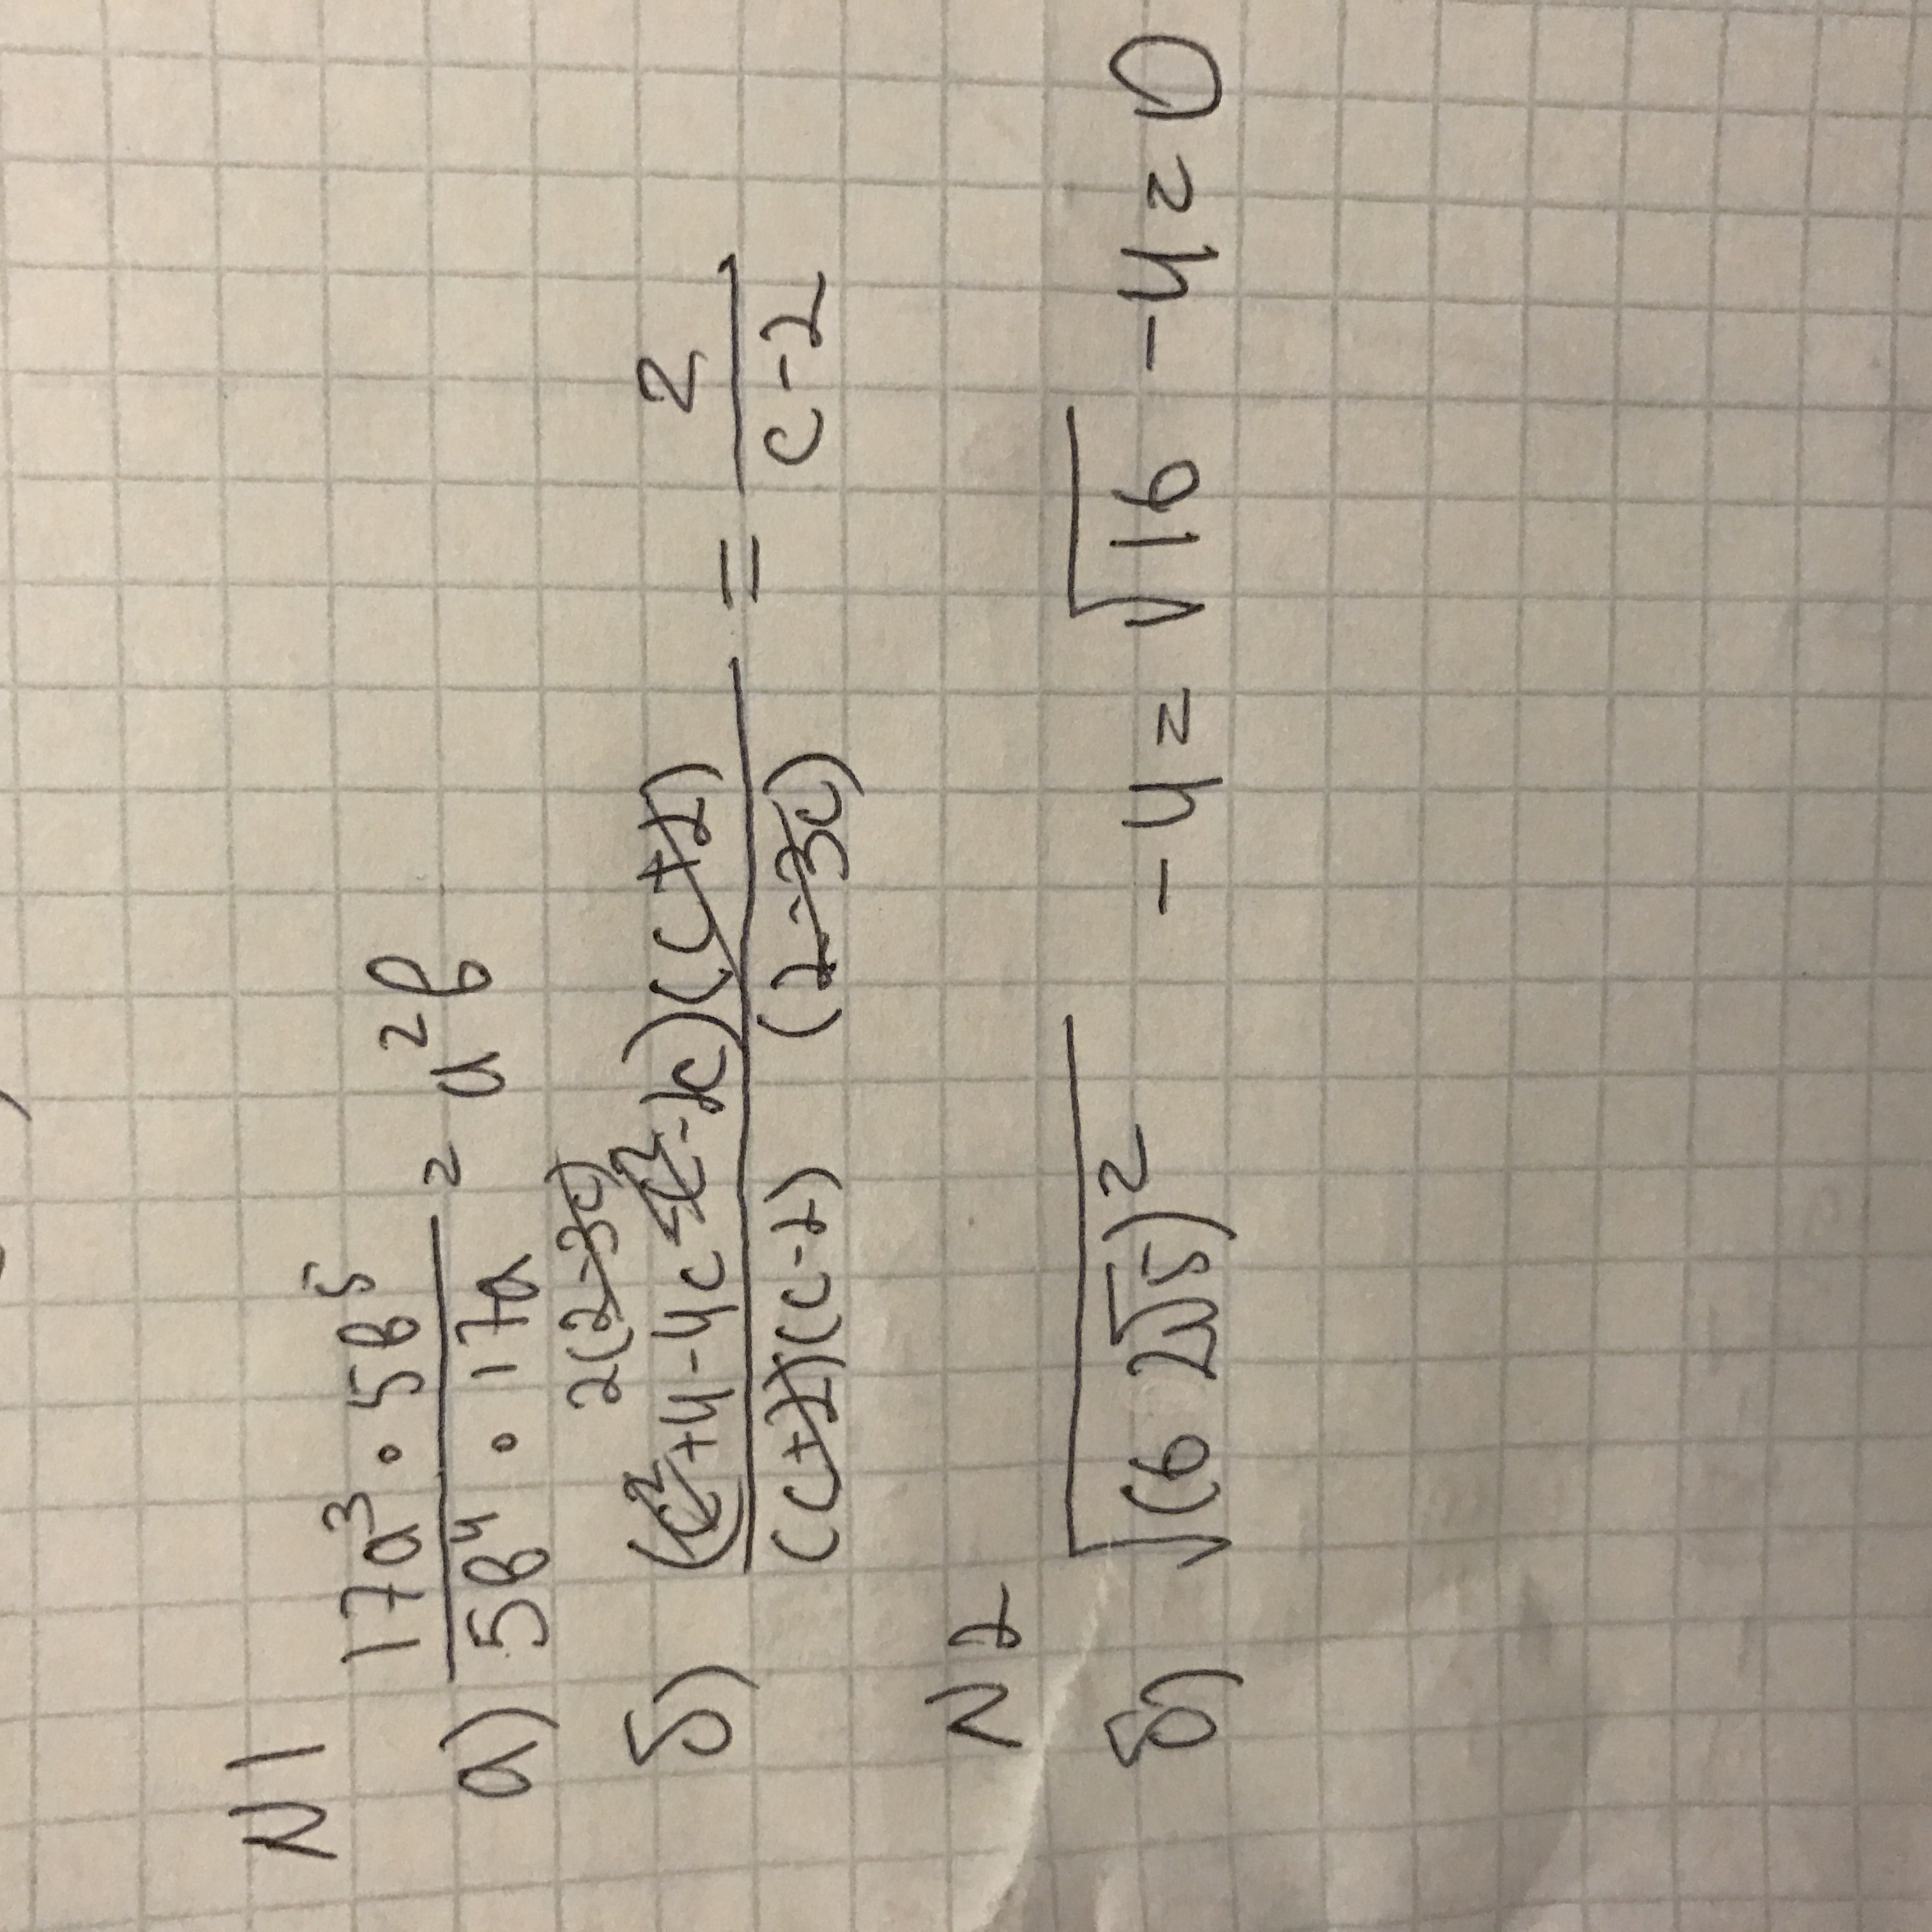 N1
а) 17a³ · 5b⁵ / 5b⁴ · 17a = a²b
2(2-3c)
б) (c²+4-4c-c²-2c)(c+2) / (c+2)(c-2) (2-3c) = 2 / c-2
N2
б) √(6 2√5)² - 4 = √16 - 4 = 0